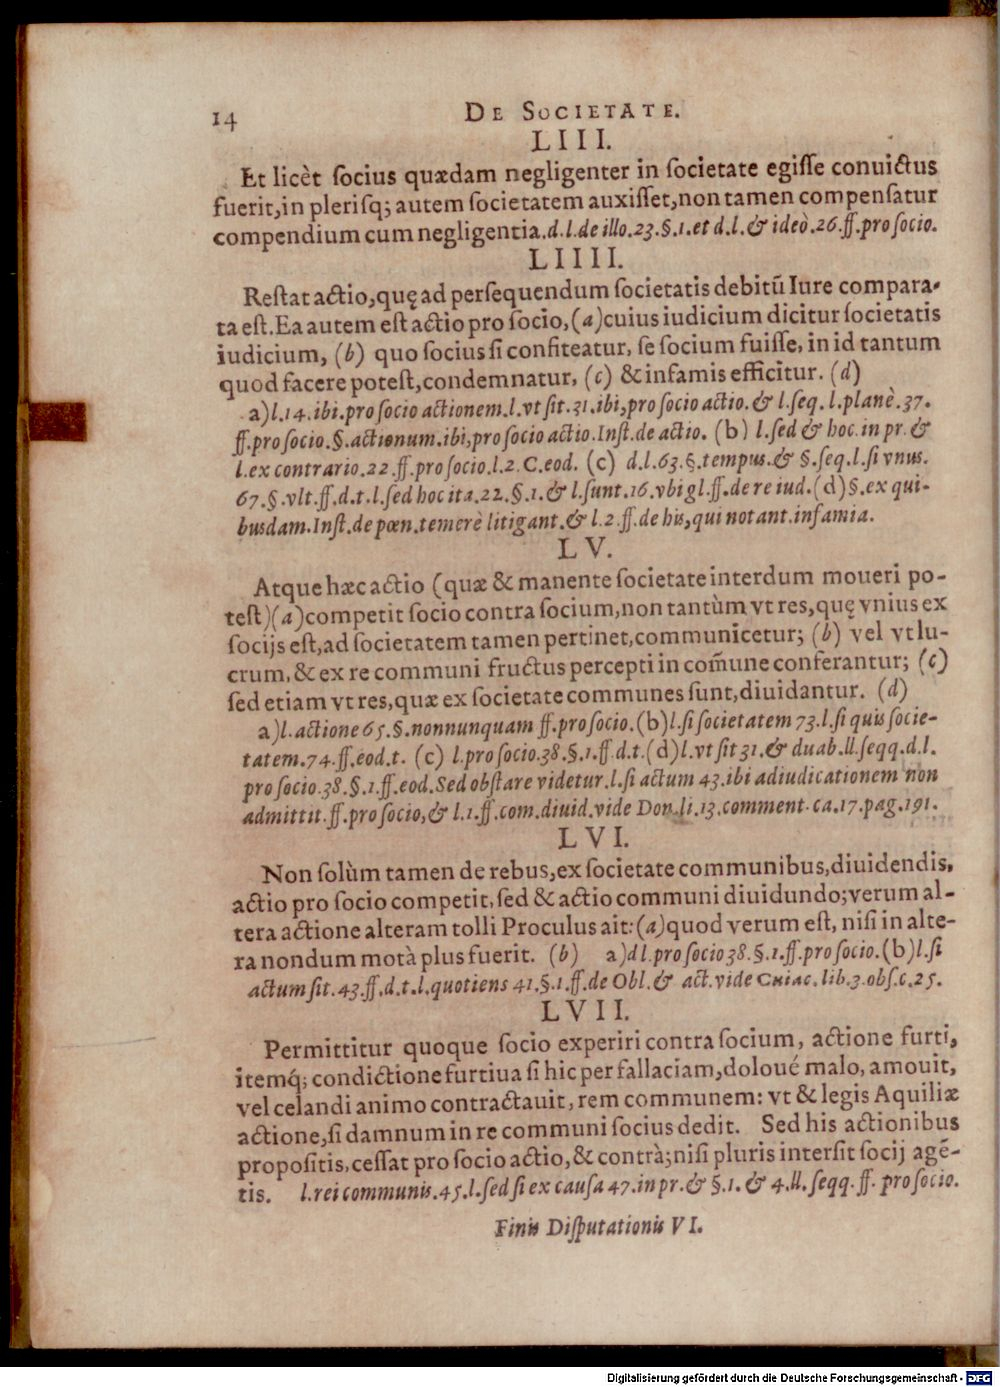 14
DE SOCIETATE.
LIII.
Et licèt socius quædam negligenter in societate egisse conuictus
fuerit, in plerisq; autem societatem auxisset, non tamen compensatur
compendium cum negligentia. d.l. de illo. 23. §. 1. et d.l. & ideò. 26. ff. pro socio.
LIIII.
Restat actio, quę ad persequendum societatis debitũ Iure compara-
ta est. Ea autem est actio pro socio, (a) cuius iudicium dicitur societatis
iudicium, (b) quo socius si confiteatur, se socium fuisse, in id tantum
quod facere potest, condemnatur, (c) & infamis efficitur. (d)
a) l. 14. ibi. pro socio actionem. l. vt sit. 31. ibi, pro socio actio. & l. seq. l. planè. 37.
ff. pro socio. §. actionum. ibi, pro socio actio. Inst. de actio. (b) l. sed & hoc. in pr. &
l. ex contrario. 22. ff. pro socio. l. 2. C. eod. (c) d.l. 63. §. tempus. & §. seq. l. si vnus.
67. §. vlt. ff. d.t. l. sed hoc ita. 22. §. 1. & l. sunt. 16. vbi gl. ff. de re iud. (d) §. ex qui-
busdam. Inst. de pœn. temerè litigant. & l. 2. ff. de his, qui notant. infamia.
LV.
Atque hæc actio (quæ & manente societate interdum moueri po-
test) (a) competit socio contra socium, non tantùm vt res, quę vnius ex
socijs est, ad societatem tamen pertinet, communicetur; (b) vel vt lu-
crum, & ex re communi fructus percepti in com̃une conferantur; (c)
sed etiam vt res, quæ ex societate communes sunt, diuidantur. (d)
a) l. actione 65. §. nonnunquam ff. pro socio. (b) l. si societatem 73. l. si quis socie-
tatem. 74. ff. eod. t. (c) l. pro socio. 38. §. 1. ff. d.t. (d) l. vt sit 31. & duab. ll. seqq. d.l.
pro socio. 38. §. 1. ff. eod. Sed obstare videtur. l. si actum 43. ibi adiudicationem non
admittit. ff. pro socio, & l. 1. ff. com. diuid. vide Don. li. 13. comment. ca. 17. pag. 191.
LVI.
Non solùm tamen de rebus, ex societate communibus, diuidendis,
actio pro socio competit, sed & actio communi diuidundo; verum al-
tera actione alteram tolli Proculus ait: (a) quod verum est, nisi in alte-
ra nondum motà plus fuerit. (b) a) dl. pro socio 38. §. 1. ff. pro socio. (b) l. si
actum sit. 43. ff. d.t. l. quotiens 41. §. 1. ff. de Obl. & act. vide Cuiac. lib. 3. obs. c. 25.
LVII.
Permittitur quoque socio experiri contra socium, actione furti,
itemq́; condictione furtiua si hic per fallaciam, doloué malo, amouit,
vel celandi animo contractauit, rem communem: vt & legis Aquiliæ
actione, si damnum in re communi socius dedit. Sed his actionibus
propositis, cessat pro socio actio, & contrà; nisi pluris intersit socij agẽ-
tis. l. rei communis. 45. l. sed si ex causa 47. in pr. & §. 1. & 4. ll. seqq. ff. pro socio.
Finis Disputationis VI.
Digitalisierung gefördert durch die Deutsche Forschungsgemeinschaft - DFG